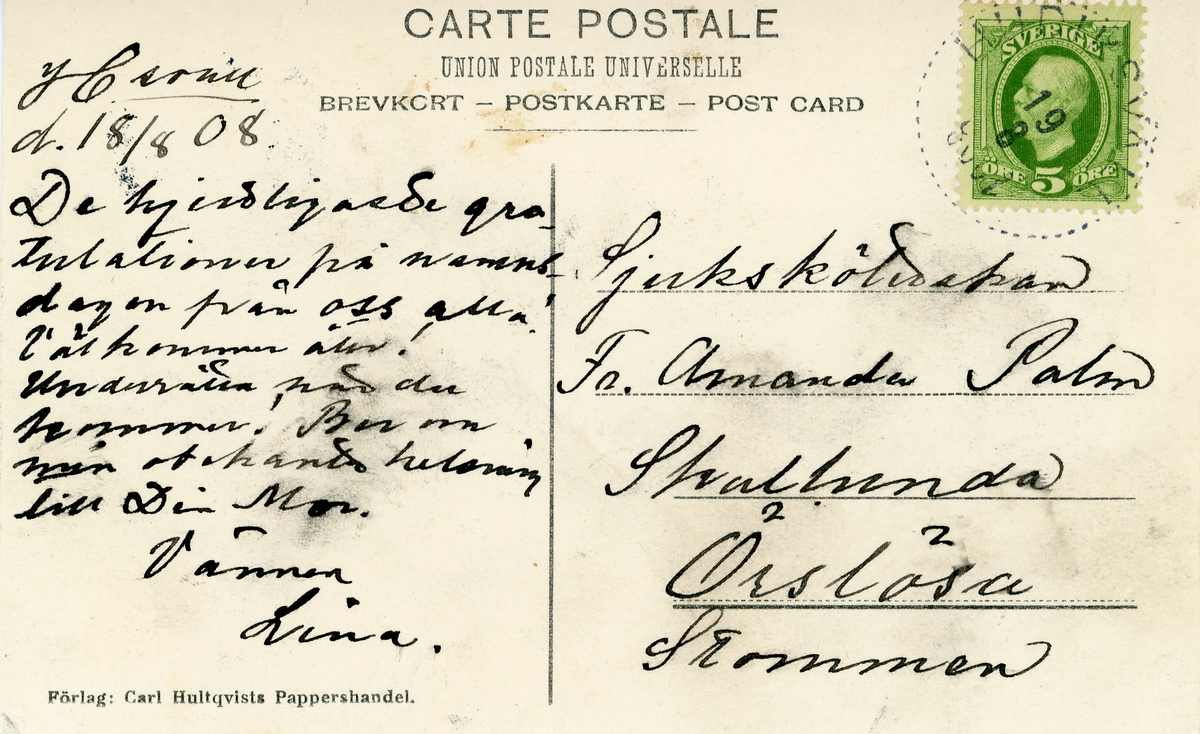 CARTE POSTALE
UNION POSTALE UNIVERSELLE
BREVKORT – POSTKARTE – POST CARD
d. 18/8 08.
De hjertligaste gra-
tulationer på namns-
dagen från oss alla!
Välkommen åter!
Underrätta när du
kommer! Ber om
min obekanta helsning
till Din Mor.
Vännen
Lina.
Förlag: Carl Hultqvists Pappershandel.
SVERIGE
ÖRE 5 ÖRE
19
8
Sjuksköterskan
Fr. Amanda Palm
Skallunda
Örslösa
Stommen